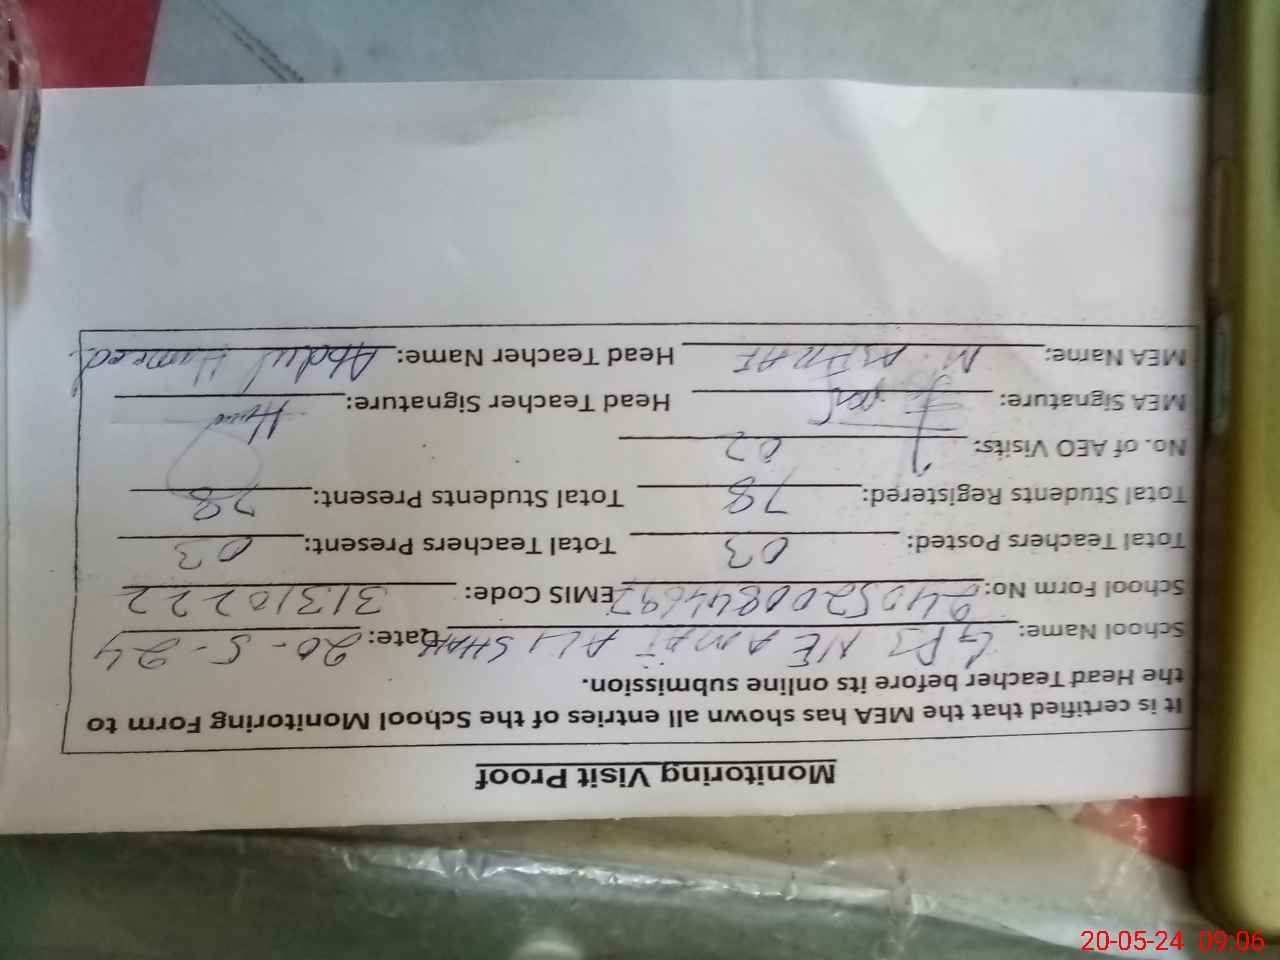 Monitoring Visit Proof
It is certified that the MEA has shown all entries of the School Monitoring Form to
the Head Teacher before its online submission.
School Name: GPS NEAMAT ALI SHAH Date: 20-5-24
School Form No: 24052008444697 EMIS Code: 31310222
Total Teachers Posted: 03 Total Teachers Present: 03
Total Students Registered: 78 Total Students Present: 78
No. of AEO Visits: 02
MEA Signature: Head Teacher Signature:
MEA Name: M. ASHRAF Head Teacher Name: Abdul Hameed
20-05-24 09:06